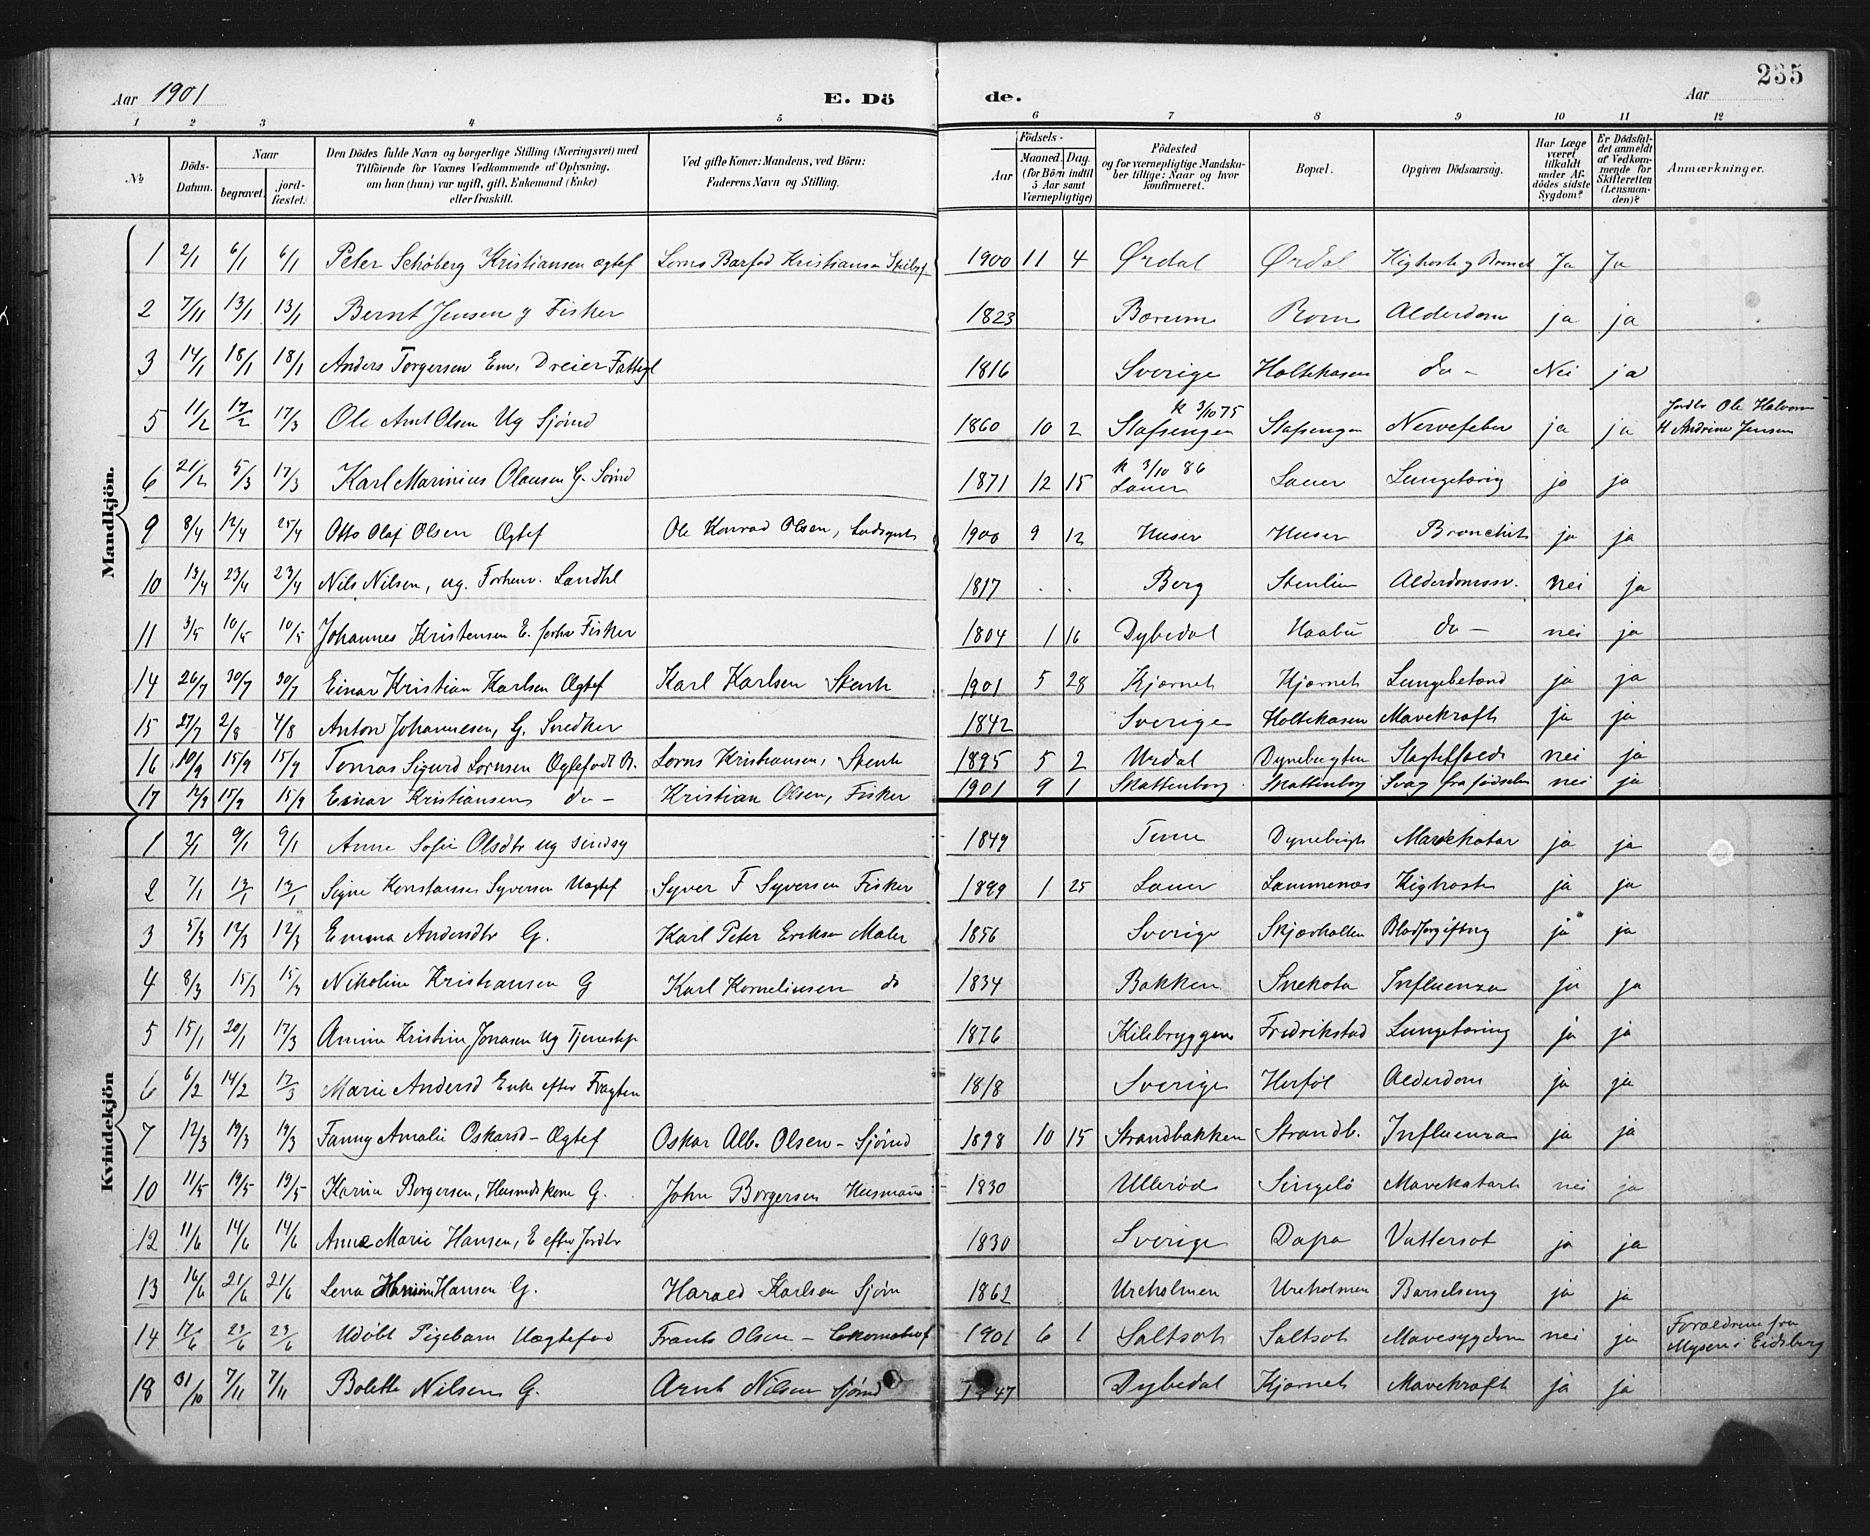 Aar 1901 E. Dö de. Aar 235
1 2 3 4 5 6 7 8 9 10 11 12
№ Döds-Datum. Naar begravet. jord-fæstet. Den Dödes fulde Navn og borgerlige Stilling (Næringsvei) med Tilföiende for Voxnes Vedkommende af Oplysning, om han (hun) var ugift, gift, Enkemand (Enke) eller fraskilt. Ved gifte Koner: Mandens, ved Börn: Faderens Navn og Stilling. Födsels- Aar Maaned. Dag. (for Börn indtil 5 Aar samt Værnepligtige) Födested og for værnepligtige Mandska-ber tillige: Naar og hvor konfirmeret. Bopæl. Opgiven Dödsaarsag. Har Læge været tilkaldt under Af-dödes sidste Sygdom? Er Dödsfal-det anmeldt af Vedkom-mende for Skifteretten (Lensman-den)? Anmærkninger.
Mandkjön.
1 2/1 6/1 6/1 Peter Schöberg Kristiansen ægtef Lorns Barfod Kristiansen 1900 11 4 Ørdal Ørdal Kighoste og Bronch Ja Ja
2 7/11 13/1 13/1 Bernt Jensen g Fisker 1823 Bærum Rom Alderdom ja ja
3 14/1 18/1 18/1 Anders Torgersen Em. Dreier Fattigl 1816 Sverige Holtekasen do - Nei ja
5 11/2 17/2 17/3 Ole Amt Olsen Ug Sjömd 1860 10 2 k 3/10 75 Stafsengen Stafsengen Nervefeber ja ja Jordbr Ole Halvorsen H Andrine Jensen
6 21/2 5/3 17/3 Karl Marinius Olausen G. Sömd 1871 12 15 k 3/10 86 Lauer Lauer Lungetæring ja ja
9 8/4 12/4 25/4 Otto Olaf Olsen Ægtef Ole Konrad Olsen, 1900 9 12 Huser Huser Bronchit ja ja
10 19/4 23/4 23/4 Nils Nilsen, ug. Forhenv. Landhl 1817 Berg Stenlien Alderdomssv. nei ja
11 3/5 10/5 10/5 Johannes Kristensen E. forhv Fisker 1804 1 16 Dybedal Haabu do - nei ja
14 26/7 30/7 30/7 Einar Kristian Karlsen Ægtef Karl Karlsen Stenh 1901 5 28 Kjærnet Kjærnet Lungebetænd ja ja
15 27/7 2/8 4/8 Anton Johannesen, G. Snedker 1842 Sverige Holtekasen Mavekræft ja ja
16 10/9 15/9 15/9 Tomas Sigurd Lornsen Ægtefødt B. Lorns Kristiansen, Stenh 1895 5 2 Urdal Dynebugten nei ja
17 12/9 15/9 15/9 Einar Kristiansen do - Kristian Olsen, Fisker 1901 9 1 Skattenborg Skattenborg Svag fra födselen nei ja
Kvindekjön
1 3/1 9/1 9/1 Anne Sofie Olsdtr ug sindsg 1849 Tune Dynebugt Mavekatar ja ja
2 7/1 13/1 13/1 Signe Konstanse Syversen Uægtef Syver F Syversen Fisker 1899 1 25 Lauer Lammenæs Kighoste ja ja
3 5/3 12/3 12/3 Emma Andersdtr G. Karl Peter Eriksen Maler 1856 Sverige Skjærhallen Blodforgiftning ja ja
4 8/3 15/3 15/3 Nikoline Kristiansen G Karl Korneliusen do 1834 Bakken Snekota Influenza ja ja
5 15/1 20/1 17/3 Amine Kristine Jonasen Ug Tjenestep 1876 Kilebryggen Fredrikstad Lungetæring ja ja
6 6/2 14/2 17/3 Marie Andersd Enke efter Fragtem 1818 Sverige Herföl Alderdom ja ja
7 12/3 19/3 19/3 Fanny Amalie Oskarsd - Ægtef Oskar Alb. Olsen - Sjömd 1898 10 15 Strandbakken Strandb. Influenza ja ja
10 11/5 19/5 19/5 Karine Borgersen, Husmdskone G. John Borgersen Husmand 1830 Ulleröd Singelö Mavekatarh nei ja
12 11/6 14/6 14/6 Anne Marie Hansen, E efter Jordbr 1830 Sverige Dapa Vattersot ja ja
13 16/6 21/6 21/6 Lena Hansen G. Harald Karlsen Sjöm 1862 Ureholmen Ureholmen Barselseng ja ja
14 17/6 23/6 23/6 Udöbt Pigebarn Uægtefød Frants Olsen - Lokomotivf 1901 6 1 Saltsot Saltsot Mavesygdom nei ja Forældrene fra Mysen i Eidsberg
18 31/10 7/11 7/11 Bolette Nilsen G. Arnt Nilsen Sjömd 1847 Dybedal Kjærnet Mavekræft ja ja